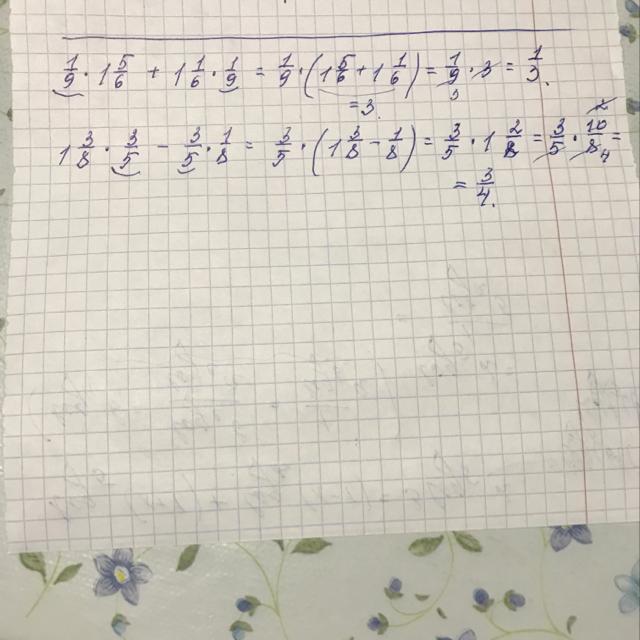 1/9 · 1 5/6 + 1 1/6 · 1/9 = 1/9 · (1 5/6 + 1 1/6) = 1/9 · 3 = 1/3.
3
= 3.
1 3/8 · 3/5 − 3/5 · 1/8 = 3/5 · (1 3/8 − 1/8) = 3/5 · 1 2/8 = 3/5 · 10/8 =
4
= 3/4.